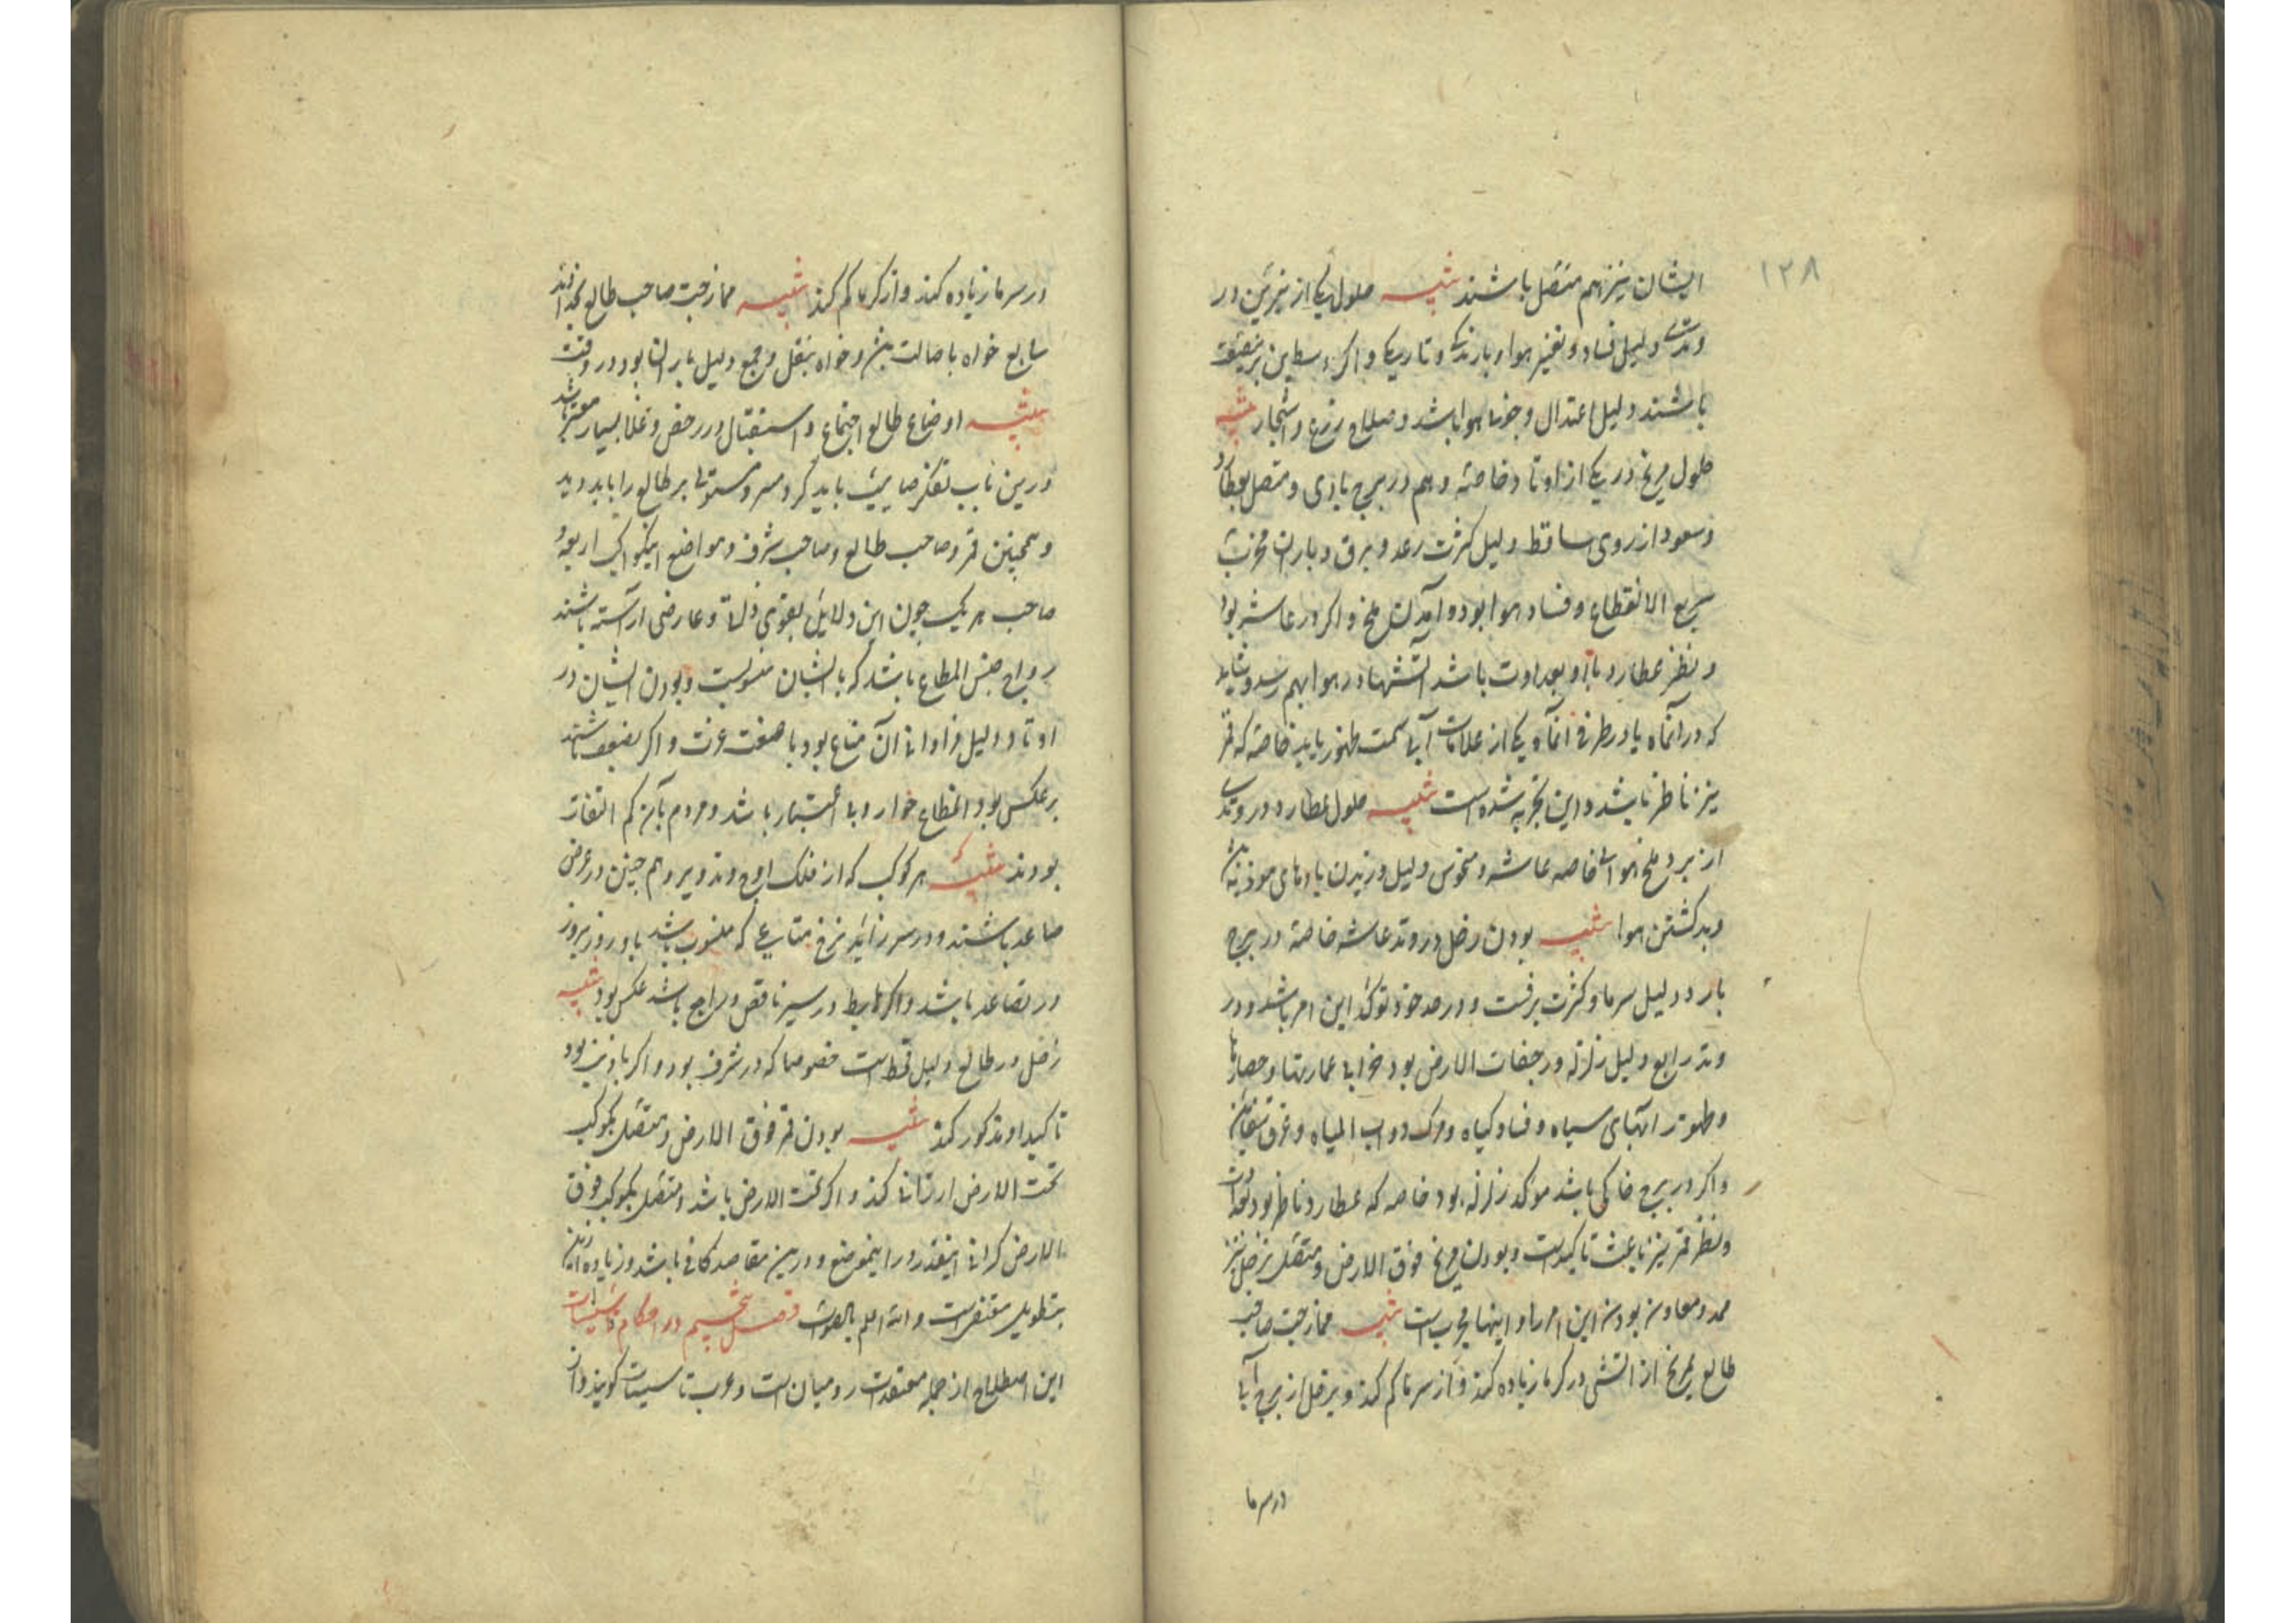 ۱۲۸
ایشان نیز بهم متصل باشند تنبیه حلول یکی از نیرین در
وتدی دلیل فساد و تغیر هوا و بارندگی و تاریکی و اگر
باشند دلیل اعتدال و خوشی هوا باشد و صلاح زرع و اشجار تنبیه
حلول مریخ در یکی از اوتاد خاصه دهم در برج بادی و متصل بعطارد
و سعود از وی ساقط دلیل کثرت رعد و برق و باران مخرب
سریع الانقطاع و فساد هوا بود و آمدن ملخ و اگر در عاشر بود
و نظر عطارد با او بعداوت باشد آتشها در هوا بهم رسد و شاید
که در آنماه یا در طرفی آنماه یکی از علامات آسمانی سمت ظهور یابد خاصه که قمر
نیز ناظر باشد و این بتجربه رسیده است تنبیه حلول عطارد در وتدی
از بروج هوائی خاصه عاشر و منحوس دلیل وزیدن بادهای موذیه باشد
و بد گشتن هوا تنبیه بودن زحل در وتد عاشر خاصه در برج
بارد دلیل سرما و کثرت برفست و در حد خود موکد این امر باشد و در
وتد رابع دلیل زلزله و رجفات الارض بود و خرابی عمارتها و حصارها
و ظهور آبهای سیاه و فساد گیاه و مرگ دواب المیاه و غرق سفاین
و اگر در برج خاکی باشد موکد زلزله بود خاصه که عطارد ناظر بود بعداوت
و نظر قمر نیز باعث تاکیدست و بودن مریخ فوق الارض و متصل بزحل نیز
ممد و معاون بودن این امر باد و اینها مجربست تنبیه ممازجت صاحب
طالع بمریخ از آتشی در گرما زیاده کند و از سرما کم کند و بزحل از برج آبی
در سرما
در سرما زیاده کند و از گرما کم کند تنبیه ممازجت صاحب طالع بخداوند
سابع خواه باصالت باشد و خواه بنقل و جمع دلیل باران بود در وقت
تنبیه اوضاع طالع اجتماع و استقبال در رخص و غلا بسیار معتبر باشد
درین باب تفکر صایب باید کرد و مستولی بر طالع را باید دید
و همچنین قمر و صاحب طالع و صاحب شرف و مواضع این کواکب اربعه و
صاحب هر یک چون این دلایل بقوی ذاتی و عارضی آراسته باشند
رواج جنس المطاع باشد که بایشان منسوبست و بودن ایشان در
اوتاد دلیل فراوانی آن متاع بود با صفت عزت و اگر بضعف باشند
برعکس بود المطاع خوار و بی اعتبار باشد و مردم بآن کم التفات
بودند تنبیه هر کوکب که از فلک اوج و تدویر و هم چنین در عرض
صاعد باشند و در سیر زاید نرخ متاعی که منسوب باشد باو روز بروز
در تصاعد باشد و اگر هابط و در سیر ناقص و راجع باشد عکس بود تنبیه
زحل در طالع دلیل قحط است خصوصا که در شرف بود و اگر باذنب بود
تاکید او مذکور کند تنبیه بودن قمر فوق الارض و متصل بکوکب
تحت الارض ارزانی کند و اگر تحت الارض باشد و متصل بکوکب فوق
الارض گرانی اینقدر در اینموضع و درین مقاصد کافی باشد و زیاده ازین
بتطویل مفضی است والله اعلم بالصواب فصل ششم در احکام تاسیسات
این اصطلاح از جمله معتقدات رومیان است و عرب تاسیسات گویند و آن